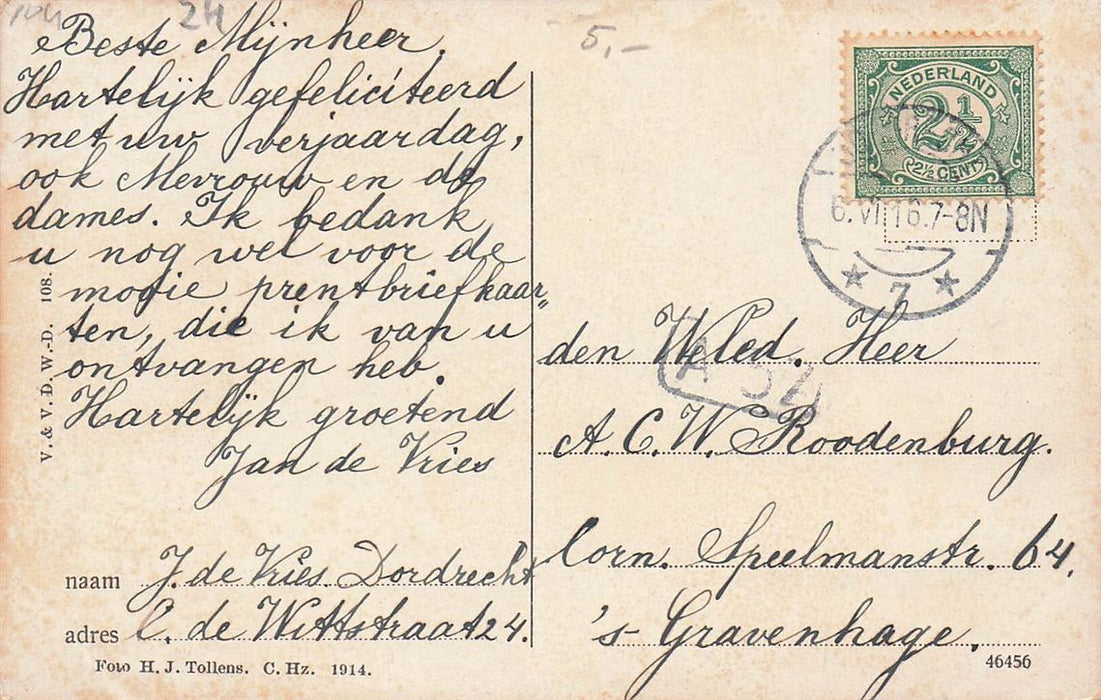 24
5,-
Beste Mijnheer,
Hartelijk gefeliciteerd
met uw verjaardag,
ook Mevrouw en de
dames. Ik bedank
u nog wel voor de
mooie prentbriefkaar„
ten, die ik van u
ontvangen heb.
Hartelijk groetend
Jan de Vries
V. & V. D. W.-D. 108.
naam J. de Vries. Dordrecht
adres C. de Wittstraat 24.
Foto H. J. Tollens. C. Hz. 1914.
NEDERLAND
2½
2½ CENT
6.VI 16.7-8N
7
A 52
den Weled. Heer
A. C. W. Roodenburg.
Corn. Speelmanstr. 64.
's-Gravenhage.
46456